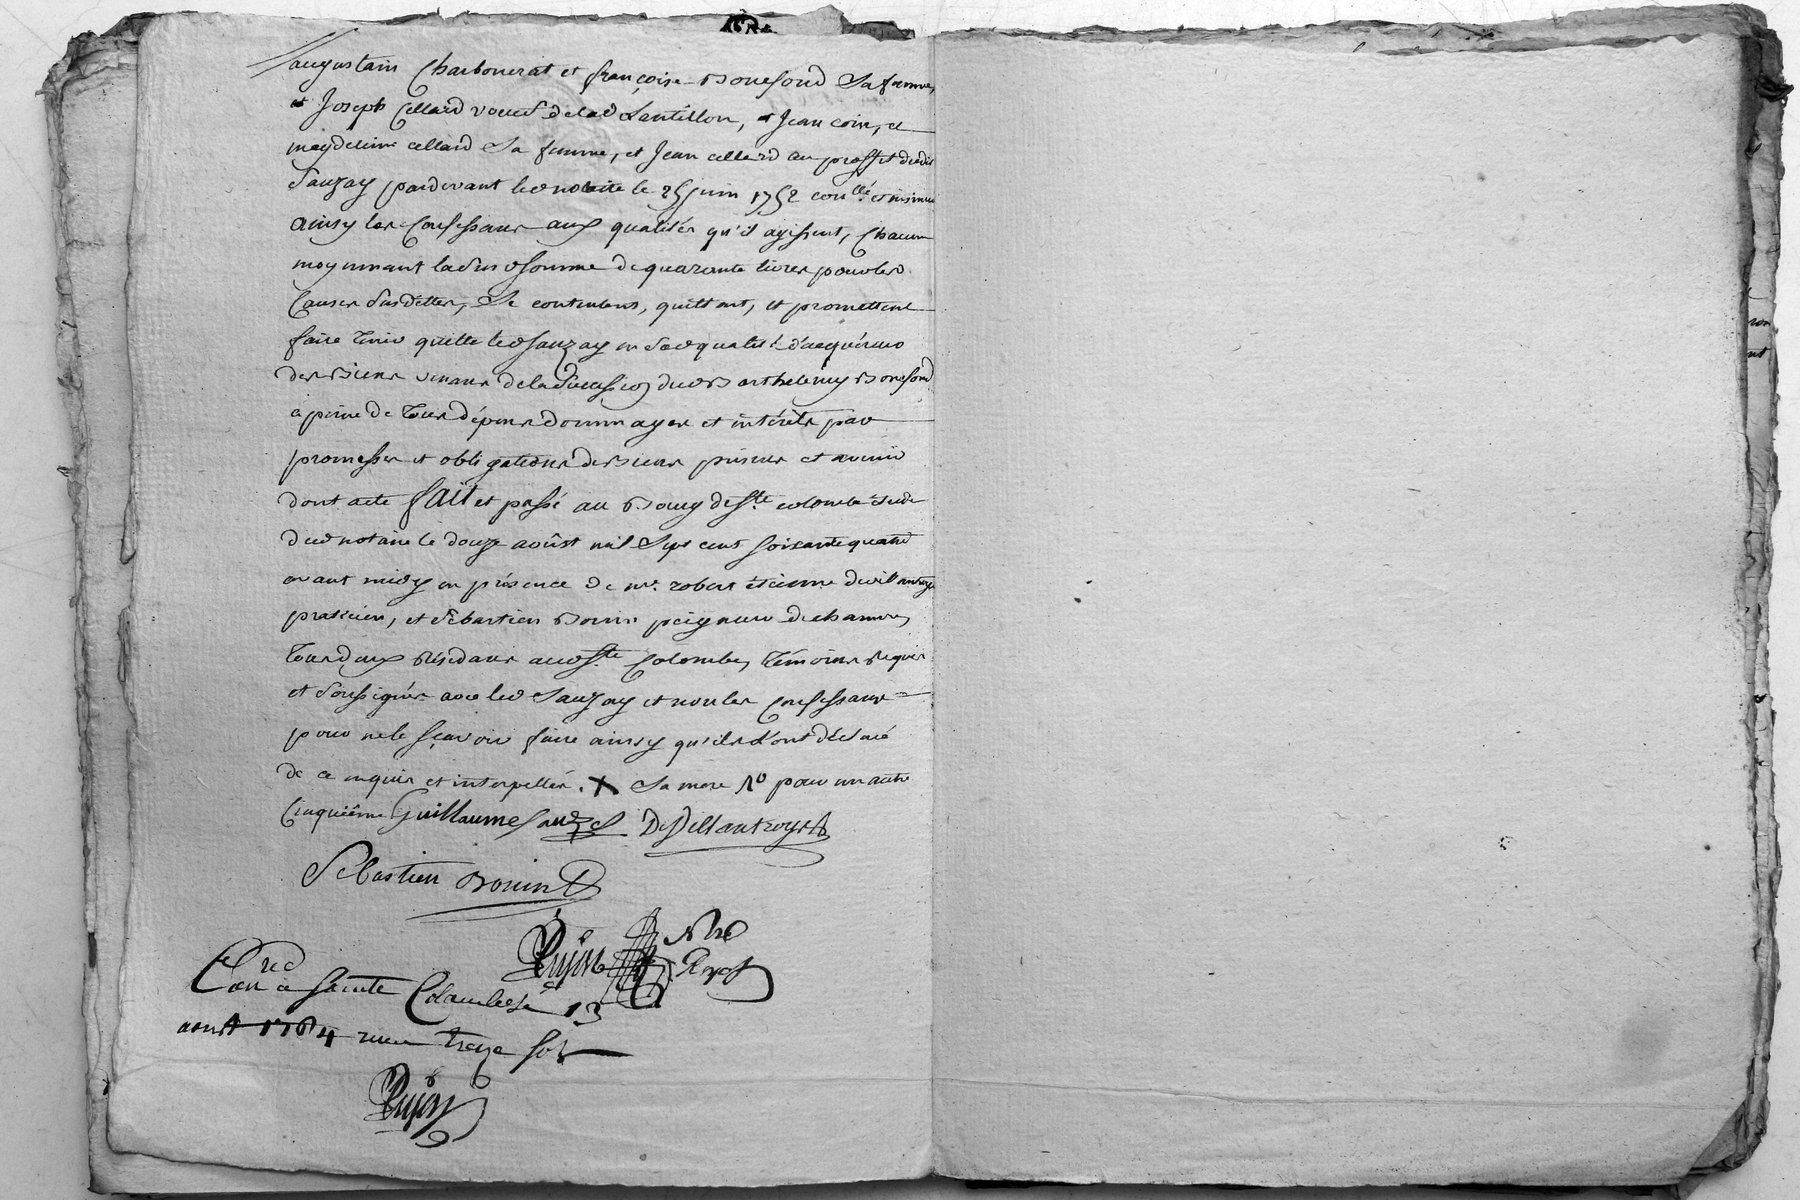 augustain Charbonerat et françoise Bonefond Sa femme,
et Joseph Cellard veuf de lad Lantillon, et Jean coin, et
magdeleine cellard Sa femme, et Jean cellard au proffit dudit
Sauzay pardevant led notaire le 25 juin 1752 con.llé et insinué
ainsy les Confessans aux qualités qu'il agissent, Chacun
moyennant ladite somme de quarante livres pour les
Causes Susdittes, Se contentent, quittent, et promettent
faire tenir quitte led Sauzay en Sad qualité d'acquéreur
des Biens venans de la Succession dud Barthelemy Bonefond
a peine de tous dépens dommages et intérêts par
promesses et obligations de Biens présens et avenir
dont acte fait et passé au Bourg de Ste colombe étude
dud notaire le douze aoûst mil Sept cent soixante quatre
avant midy en présence de mre. robert étienne devillantroye
praticien, et Sébastien Bonin peigneur de chanvre,
tous deux Résidans aud Ste Colombe, témoins Requis
et Soussignés avec led Sauzay et non les Confessans
pour ne le sçavoir faire ainsy qu'ils l'ont déclaré
de ce enquis et interpellés. X Sa mere Ro pour un autre
Cinquième Guillaume Sauzes DeVillantroys
Sébastien Bonin
Pujon Nre
Royal
Con.red a Sainte Colombe le 13
aoust 1764 recu treze sols
Pujon